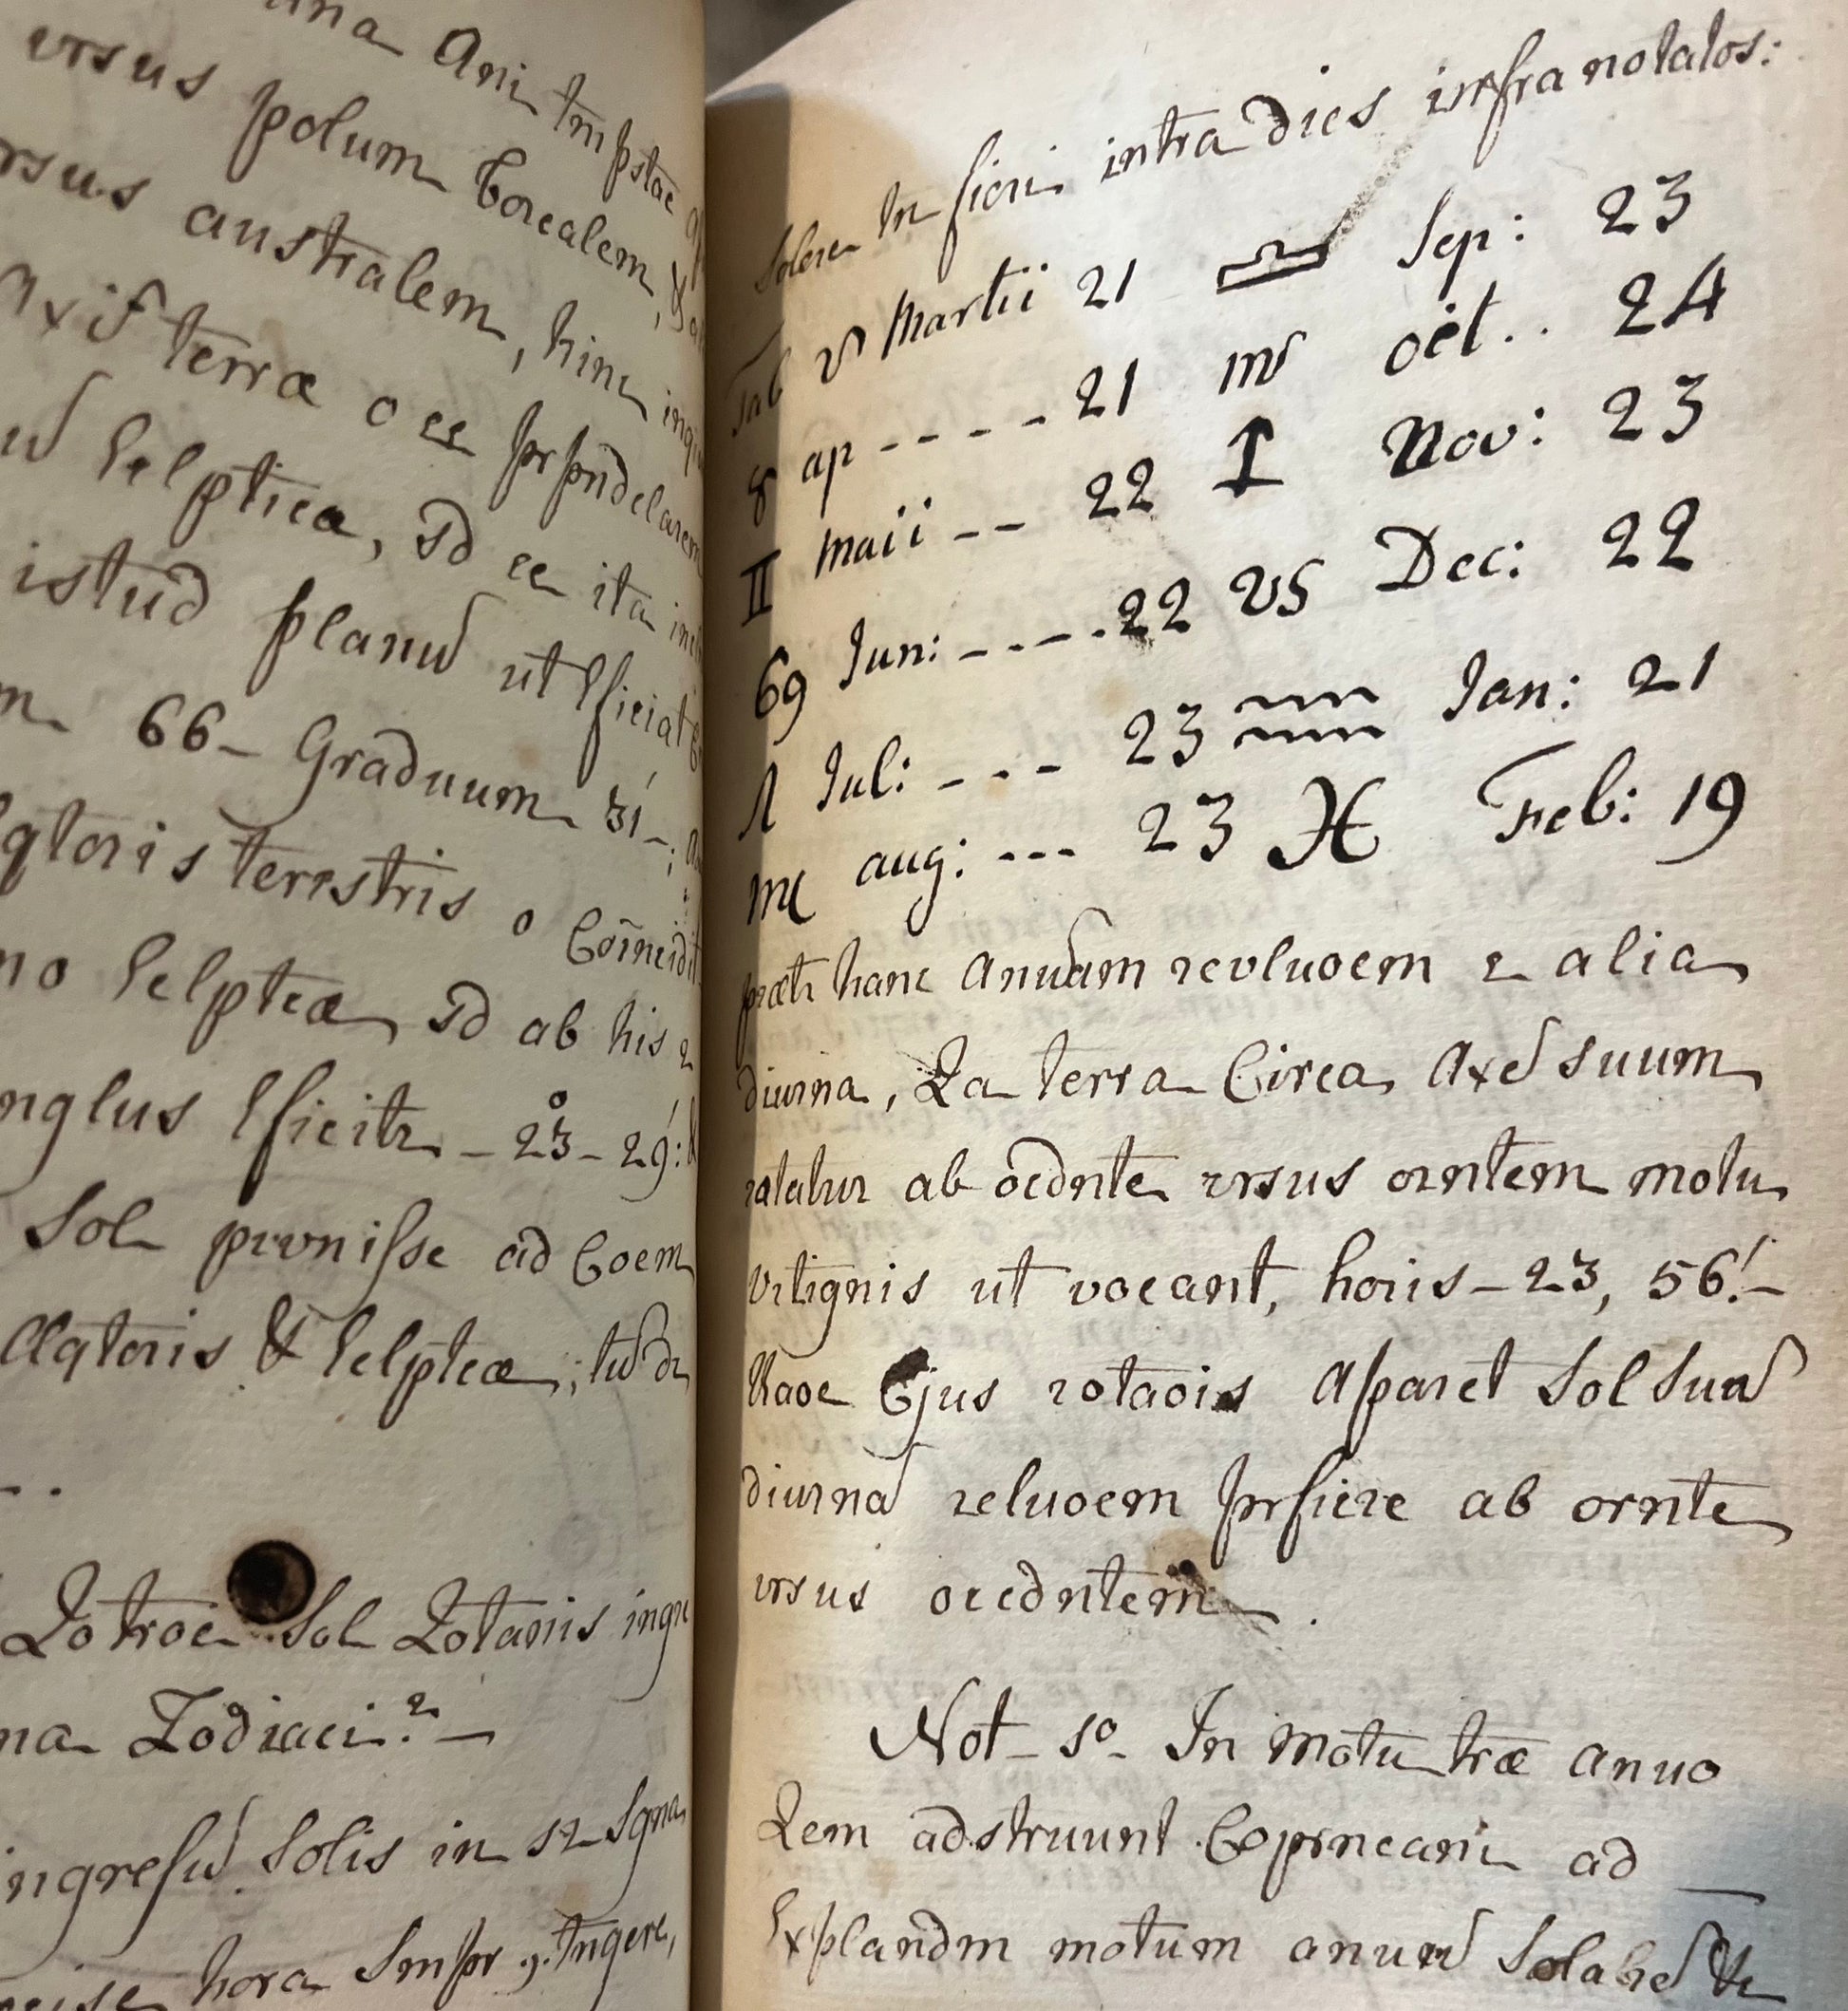 Ani tm pstae
vrsus polum borealem, &
rsus australem, hinc
axis terræ o ee prpndclarem
Eclptica, sd ee ita
istud planu ut Eficiat
66- Graduum 31-;
qtoris terrestris o Coincidit
no Eclpticæ sd ab his 2
nglus Eficitr - 23° - 29':
Sol prvnisse ad Coem
Aqtoris & Eclpticæ; tu dr
Quo troe Sol Quotaniis ingr
na Zodiaci? -
ingresu Solis in 12 Sgna
hora Smpr Tngere,
Solere tn fieri intra dies infra notatos:
♈ Martii 21 ♎ Sep: 23
♉ ap ----- 21 ♏ oct.. 24
♊ maii -- 22 ♐ Nov: 23
♋ Jun: ----- 22 ♑ Dec: 22
♌ Jul: --- 23 ♒ Jan: 21
♍ aug: --- 23 ♓ Feb: 19
prætr hanc anuam revluoem e alia
diurna, Qa terra Circa axe suum
rotatur ab ocdnte vrsus orntem motu
vrtignis ut vocant, horis - 23, 56'. -
Raoe Ejus rotaois Aparet Sol Sua
diurna reluoem prficere ab ornte
vrsus occdntem.
Not- 1º- In motu træ anuo
Qem adstruunt Coprneani ad
Explandm motum anuu Sola